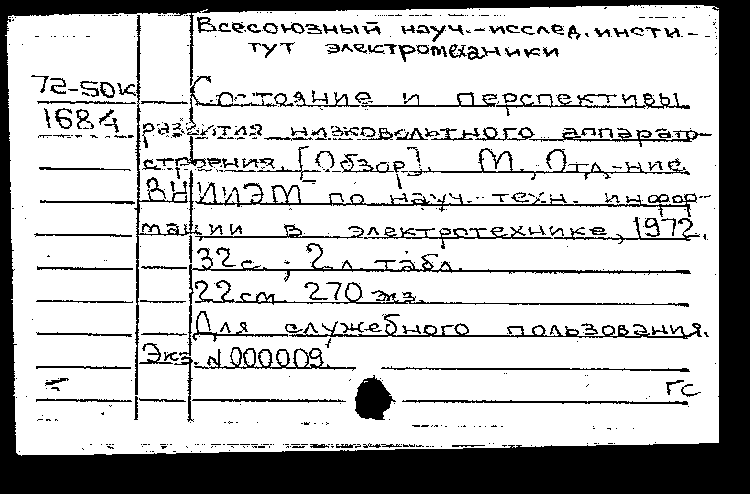 Всесоюзный науч.-исслед. инсти-
тут электромеханики
72-50к
1684
Состояние и перспективы
развития низковольтного аппарато-
строения. [Обзор]. М., Отд-ние
ВНИИЭМ по науч.-техн. инфор-
мации в электротехнике, 1972.
32 с.; 2 л. табл.
22 см. 270 экз.
Для служебного пользования.
Экз. N 000009.
ГС